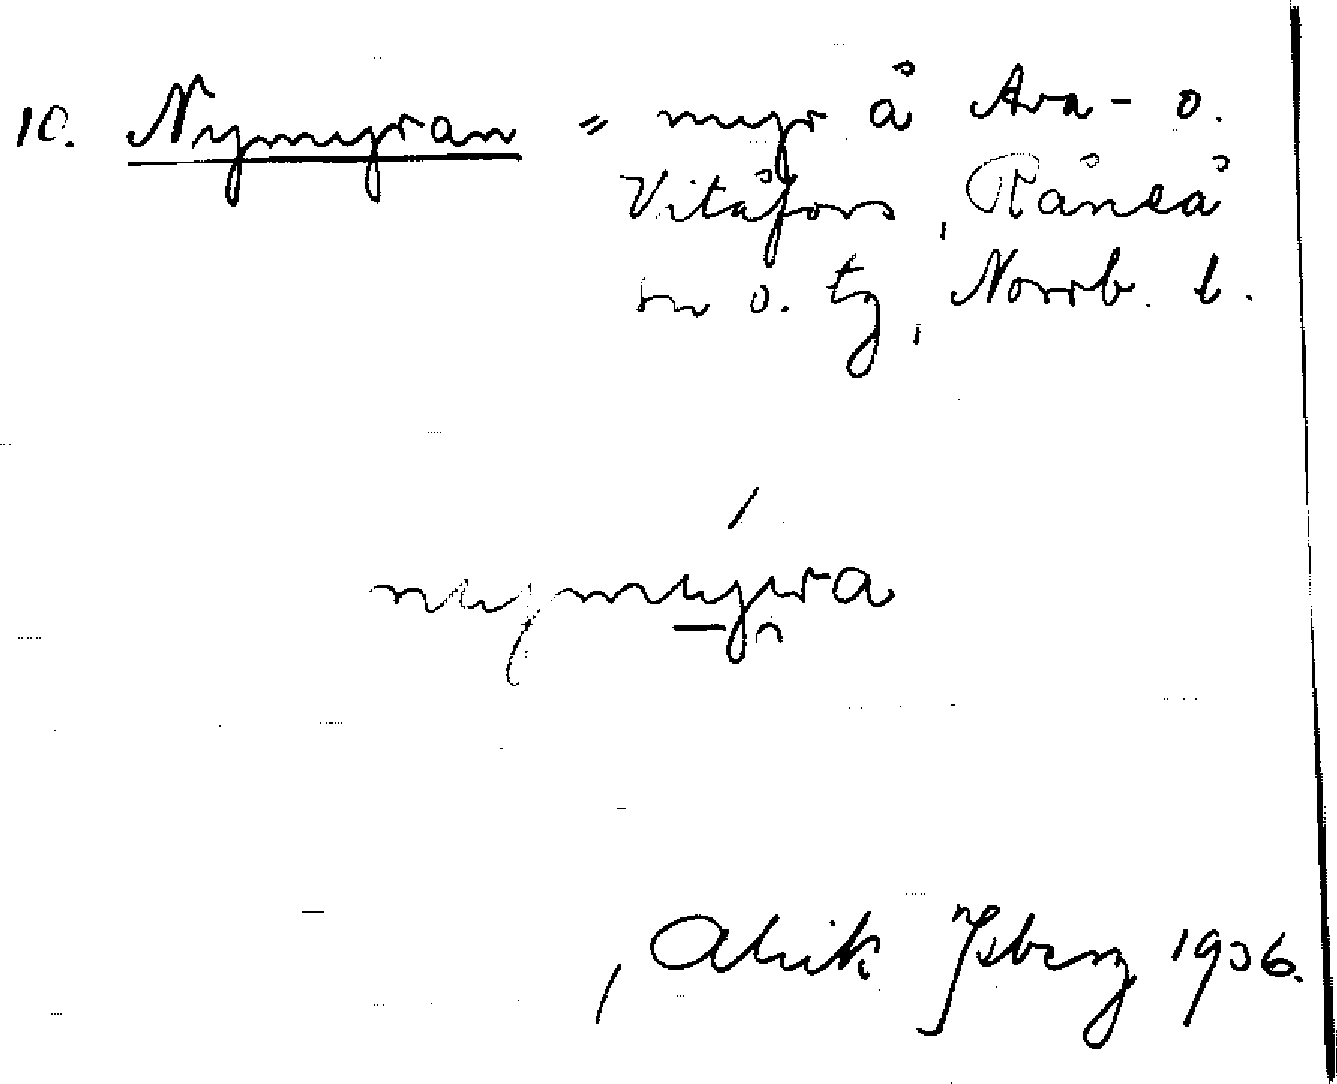 10. Nymyran = myr å Ava- o.
Vitåfors, Råneå
sn o. tg, Norrb. l.
nymyra
Alrik Isberg 1936.